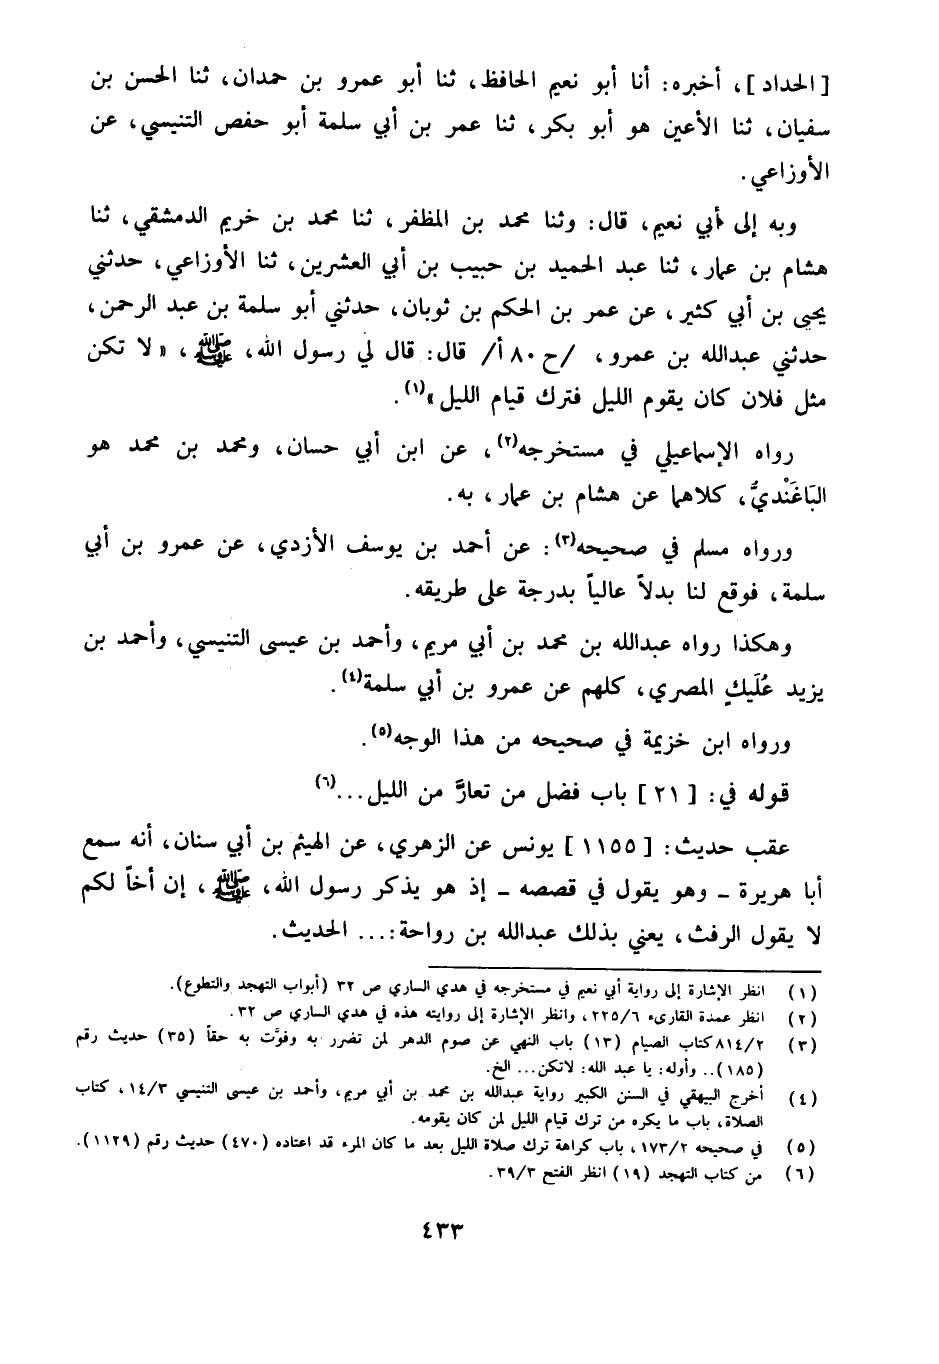 [الحداد]، أخبره: أنا أبو نعيم الحافظ، ثنا أبو عمرو بن حمدان، ثنا الحسن بن
سفيان، ثنا الأعين هو أبو بكر، ثنا عمر بن أبي سلمة أبو حفص التنيسي، عن
الأوزاعي.
وبه إلى أبي نعيم، قال: وثنا محمد بن المظفر، ثنا محمد بن خريم الدمشقي، ثنا
هشام بن عمار، ثنا عبد الحميد بن حبيب بن أبي العشرين، ثنا الأوزاعي، حدثني
يحيى بن أبي كثير، عن عمر بن الحكم بن ثوبان، حدثني أبو سلمة بن عبد الرحمن،
حدثني عبدالله بن عمرو، /ح ٨٠ أ/ قال: قال لي رسول الله، ﷺ، «لا تكن
مثل فلان كان يقوم الليل فترك قيام الليل»(١).
رواه الإسماعيلي في مستخرجه(٢)، عن ابن أبي حسان، ومحمد بن محمد هو
البَاغَنْديُّ، كلاهما عن هشام بن عمار، به.
ورواه مسلم في صحيحه(٣): عن أحمد بن يوسف الأزدي، عن عمرو بن أبي
سلمة، فوقع لنا بدلاً عالياً بدرجة على طريقه.
وهكذا رواه عبدالله بن محمد بن أبي مريم، وأحمد بن عيسى التنيسي، وأحمد بن
يزيد عُلَيكٍ المصري، كلهم عن عمرو بن أبي سلمة(٤).
ورواه ابن خزيمة في صحيحه من هذا الوجه(٥).
قوله في: [٢١] باب فضل من تعارَّ من الليل...(٦)
عقب حديث: [١١٥٥] يونس عن الزهري، عن الهيثم بن أبي سنان، أنه سمع
أبا هريرة ـ وهو يقول في قصصه ـ إذ هو يذكر رسول الله، ﷺ، إن أخاً لكم
لا يقول الرفث، يعني بذلك عبدالله بن رواحة:... الحديث.
(١) انظر الإشارة إلى رواية أبي نعيم في مستخرجه في هدي الساري ص ٣٢ (أبواب التهجد والتطوع).
(٢) انظر عمدة القارىء ٢٢٥/٦، وانظر الإشارة إلى روايته هذه في هدي الساري ص ٣٢.
(٣) ٨١٤/٢كتاب الصيام (١٣) باب النهي عن صوم الدهر لمن تضرر به وفوَّت به حقاً (٣٥) حديث رقم
(١٨٥).. وأوله: يا عبد الله: لاتكن... الخ.
(٤) أخرج البيهقي في السنن الكبير رواية عبدالله بن محمد بن أبي مريم، وأحمد بن عيسى التنيسي ١٤/٣، كتاب
الصلاة، باب ما يكره من ترك قيام الليل لمن كان يقومه.
(٥) في صحيحه ١٧٣/٢، باب كراهة ترك صلاة الليل بعد ما كان المرء قد اعتاده (٤٧٠) حديث رقم (١١٢٩).
(٦) من كتاب التهجد (١٩) انظر الفتح ٣٩/٣.
٤٣٣